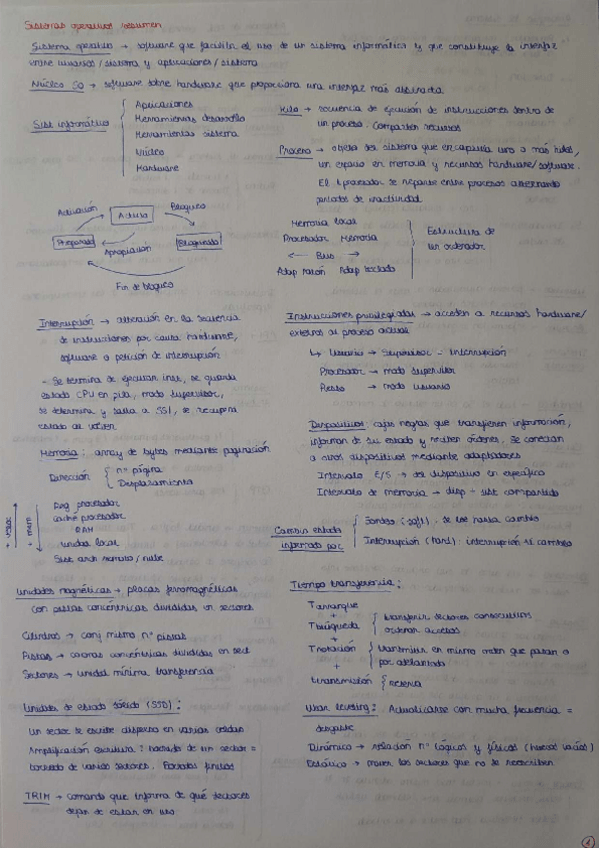 Sistemas operativos resumen
Sistema operativo → software que facilita el uso de un sistema informático y que constituye la interfaz
entre usuarios/sistema y aplicaciones/sistema
Núcleo SO → software sobre hardware que proporciona una interfaz más abstracta
Sist informático
Aplicaciones
Herramientas desarrollo
Herramientas sistema
Núcleo
Hardware
Hilo → secuencia de ejecución de instrucciones dentro de
un proceso. Comparten recursos
Proceso → objeto del sistema que encapsula uno o más hilos,
un espacio en memoria y recursos hardware/software.
El procesador se reparte entre procesos alternando
periodos de inactividad
Activación
Activo
Bloqueo
Preparado
Apropiación
Bloqueado
Fin de bloqueo
Memoria local
Procesador Memoria
← Bus →
Adap ratón Adap teclado
Estructura de
un ordenador
Interrupción → alteración en la secuencia
de instrucciones por causa hardware,
software o petición de interrupción
- Se termina de ejecutar inst, se guarda
estado CPU en pila, modo supervisor,
se determina y salta a SSI, se recupera
estado al volver
Instrucciones privilegiadas → acceden a recursos hardware/
externos al proceso actual
↳ Usuario → Supervisor - Interrupción
Procesador → modo supervisor
Resto → modo usuario
Memoria: array de bytes mediante paginación
Dirección
nº página
Desplazamiento
+ veloc
+ mem
Reg procesador
caché procesador
RAM
unidad local
Sist arch remoto / nube
Dispositivos: cajas negras que transfieren información,
informan de su estado y reciben órdenes. Se conectan
a otros dispositivos mediante adaptadores
Intervalo E/S → del dispositivo en específico
Intervalo de memoria → disp - sist compartido
Cambio estado
informado por
Sondeo (soft): se lee hasta cambio
Interrupción (hard): interrupción si cambio
Unidades magnéticas → placas ferromagnéticas
con pistas concéntricas divididas en sectores
Cilindros → conj mismo nº pistas
Pistas → coronas concéntricas divididas en sect
Sectores → unidad mínima transferencia
Tiempo transferencia:
Tarranque
+
Tbúsqueda
transferir sectores consecutivos
ordenar accesos
+
Trotación
transmitir en mismo orden que pasan o
por adelantado
+
transmisión
reserva
Unidades de estado sólido (SSD):
Un sector se escribe disperso en varias celdas
Amplificación escritura: borrado de un sector =
borrado de varios sectores. Borrados finitos
TRIM → comando que informa de qué sectores
dejan de estar en uso
Wear leveling: Actualizarse con mucha frecuencia =
desgaste
Dinámico → relación nº lógicos y físicos (nuevos vacíos)
Estático → mover los sectores que no se reescriben
1